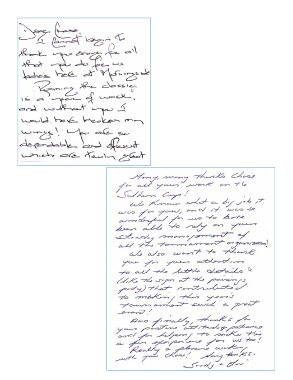 Dear Chase.
I cannot begin to
thank you enough for all
that you do for us
ladies here at Morningside
Running the classic
is a year of work!
and without you I
would have broken my
wings! You are so
dependable and efficient
which are
Many, many thanks Chase
for all your work on the
Sullivan Cup!
We know what a big job it
was for you, and it was so
wonderful for us to have
been able to rely on your
steady management of
all the tournament
We also want to thank
you for your attention
to all the little details
(like the sign at the
party) that contributed
to making this year's
tournament such a great
event!
And finally, thanks for
your positive attitude,
and for helping to make this
a fun experience for us too!
Really a pleasure working
with you Chase! Many thanks.
Sandy +